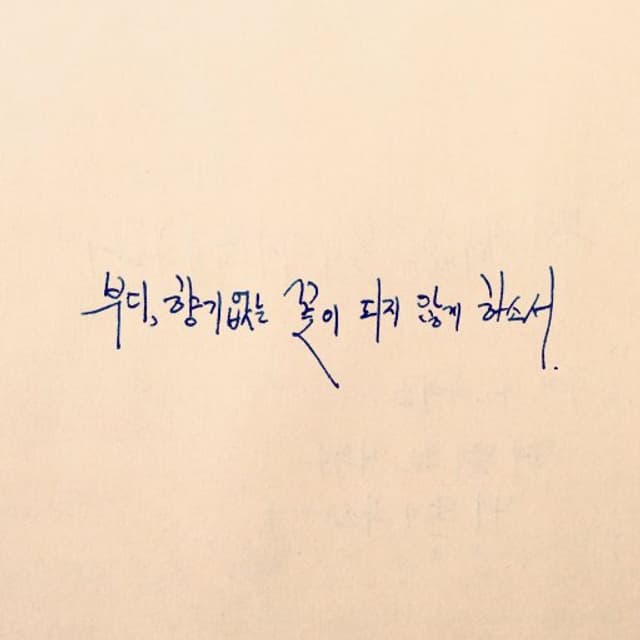 부디, 향기없는 꽃이 되지 않게 하소서.